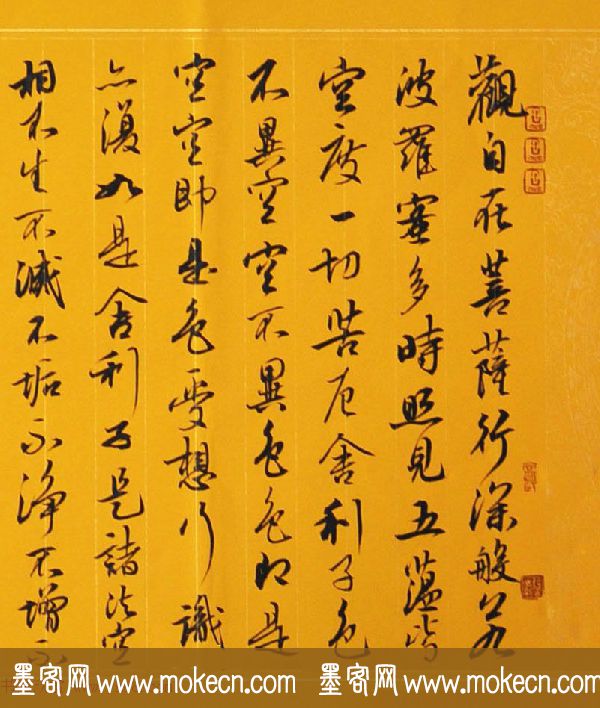 觀自在菩薩行深般若
波羅蜜多時照見五蘊皆
空度一切苦厄舍利子色
不異空空不異色色即是
空空即是色受想行識
亦復如是舍利子是諸法空
相不生不滅不垢不淨不增不
墨客网 www.mokecn.com 墨客网 www.mokecn.com